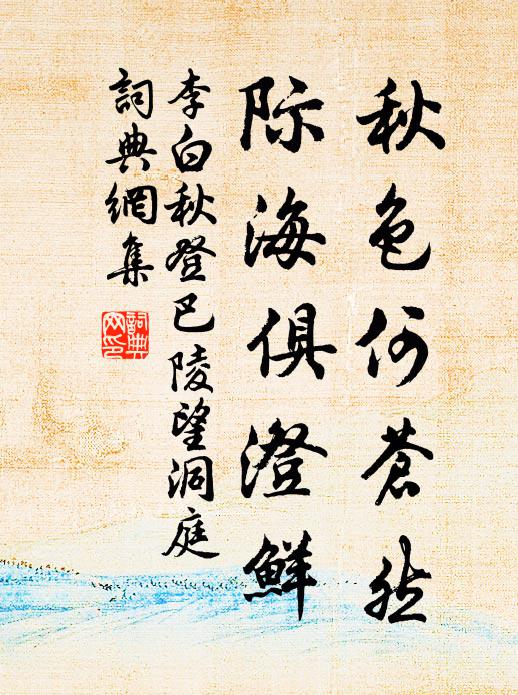 秋色何蒼然
际海俱澄鮮
李白秋登巴陵望洞庭
詞典網集
詞典网印